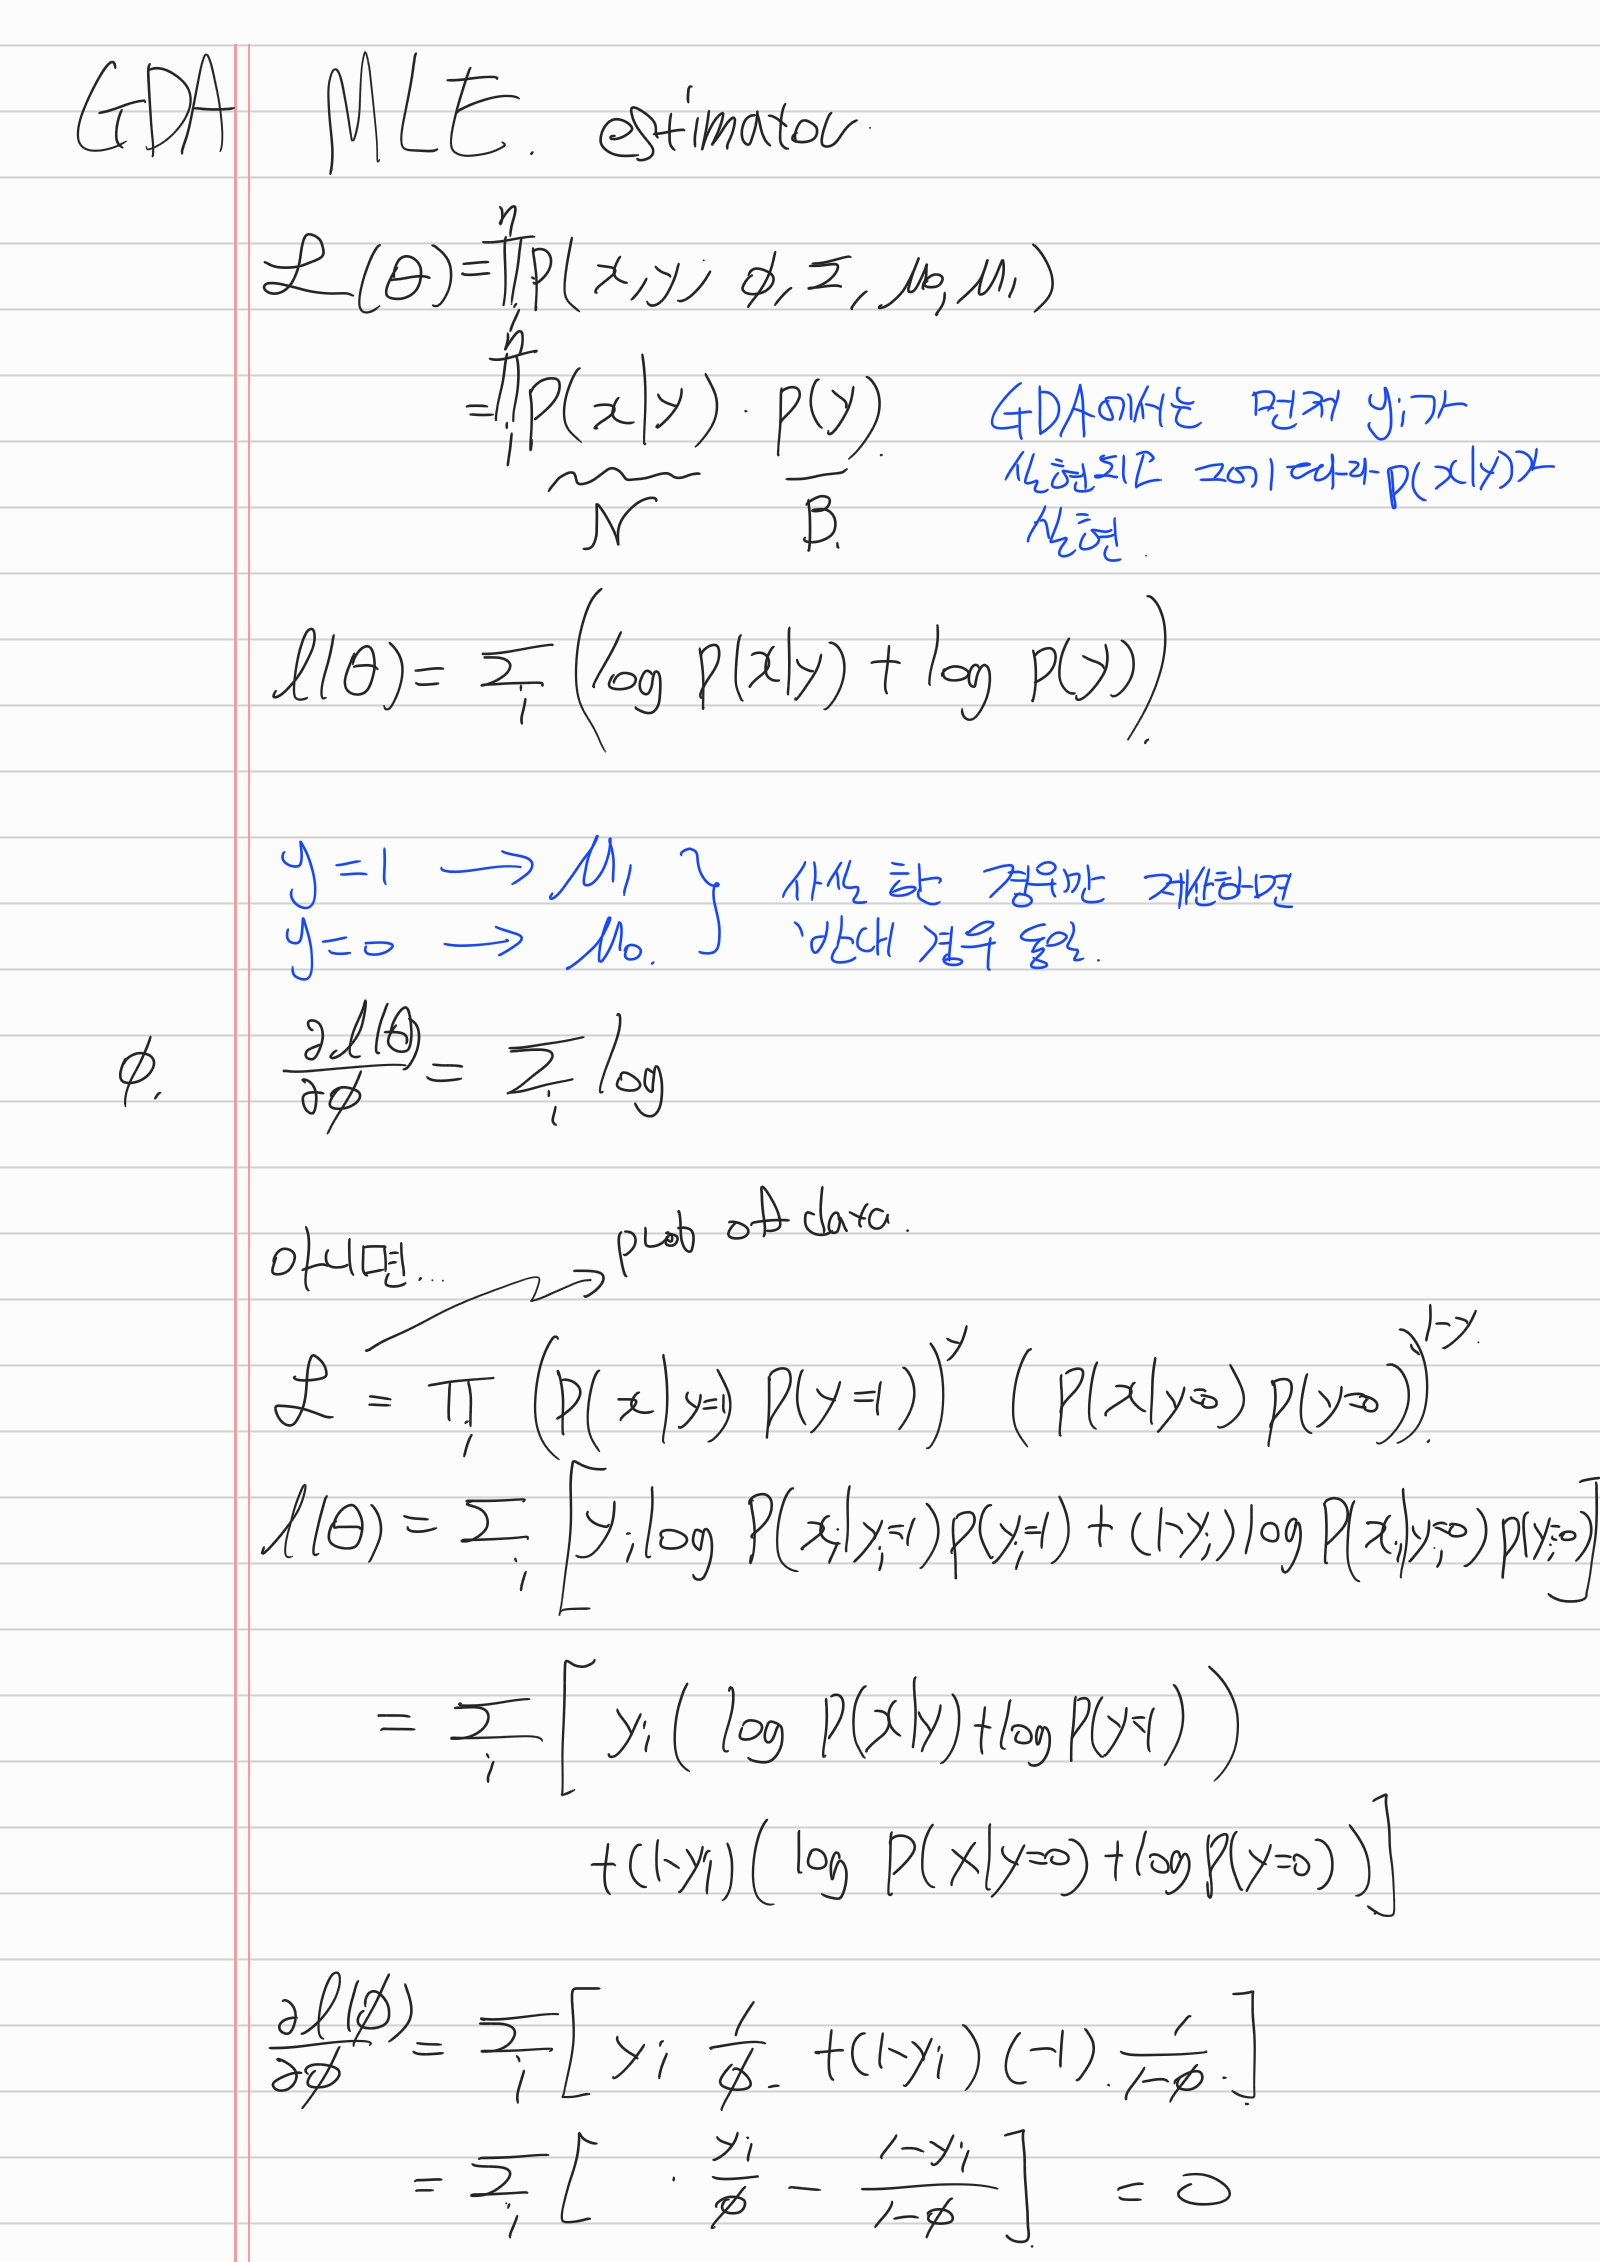 GDA MLE. estimator.
ℒ(θ) = ∏ᵢⁿ p(x, y; φ, Σ, μ₀, μ₁)
= ∏ᵢⁿ p(x|y) · p(y).
N B.
GDA에서는 먼저 yᵢ가
실현되고 그에 따라 p(x|y)가
실현.
l(θ) = Σᵢ (log p(x|y) + log p(y)).
y=1 → μ₁
y=0 → μ₀.
사실 한 경우만 계산하면
반대 경우 동일.
φ. ∂l(θ)/∂φ = Σᵢ log
아니면... prob of data.
ℒ = ∏ᵢ (p(x|y=1) p(y=1))^y (p(x|y=0) p(y=0))^(1-y).
l(θ) = Σᵢ [yᵢ log p(xᵢ|yᵢ=1) p(yᵢ=1) + (1-yᵢ) log p(xᵢ|yᵢ=0) p(yᵢ=0)]
= Σᵢ [yᵢ (log p(x|y) + log p(y=1))
+ (1-yᵢ) (log p(x|y=0) + log p(y=0))]
∂l(φ)/∂φ = Σᵢ [yᵢ 1/φ + (1-yᵢ) (-1) · 1/(1-φ)]
= Σᵢ [· yᵢ/φ - (1-yᵢ)/(1-φ)] = 0